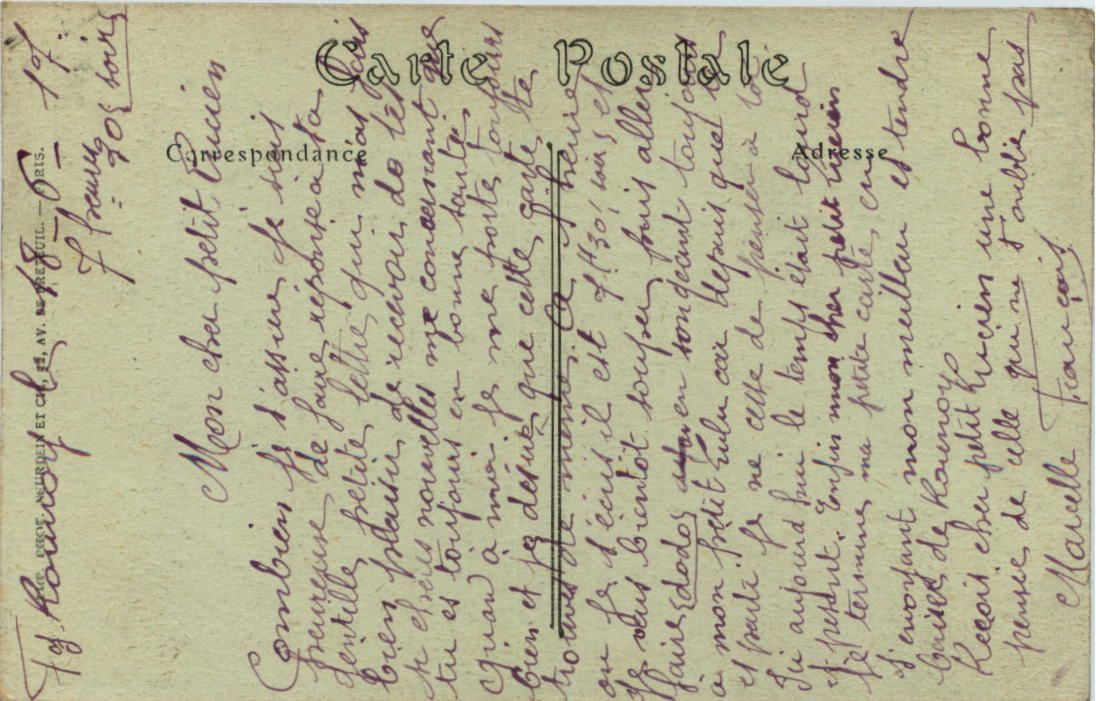 Carte Postale
Correspondance
Adresse
IMP. PHOT. NEURDEIN ET Cie, 52, AV. DE BRETEUIL. — PARIS.
Fg Rouvroy le 18 – 6 – 17.
7 heures 90s soir
Mon cher petit Lucien
Combien je t'assure je suis
heureuse de faire réponse à ta
gentille petite lettre qui m'as fais
bien plaisir de recevoir de tes
si chères nouvelles me concernant que
tu es toujours en bonne santé
quand à moi je me porte toujours
bien et je désire que cette carte te
trouve de même. Ce
ou je t'écris il est 7h30 soir et
je vais bientôt souper puis aller
faire dodo en songeant toujours
à mon petit Lulu car depuis quel
est parti je ne cesse de penser à toi
Ici aujourd'hui le temps était lourd
Enfin mon cher petit Lucien
je termine ma petite carte, en
t'envoyant mon meilleur et tendre
baiser de Rouvroy
Reçois cher petit Lucien une bonne
pensée de celle qui ne t'oublie pas
Marcelle François